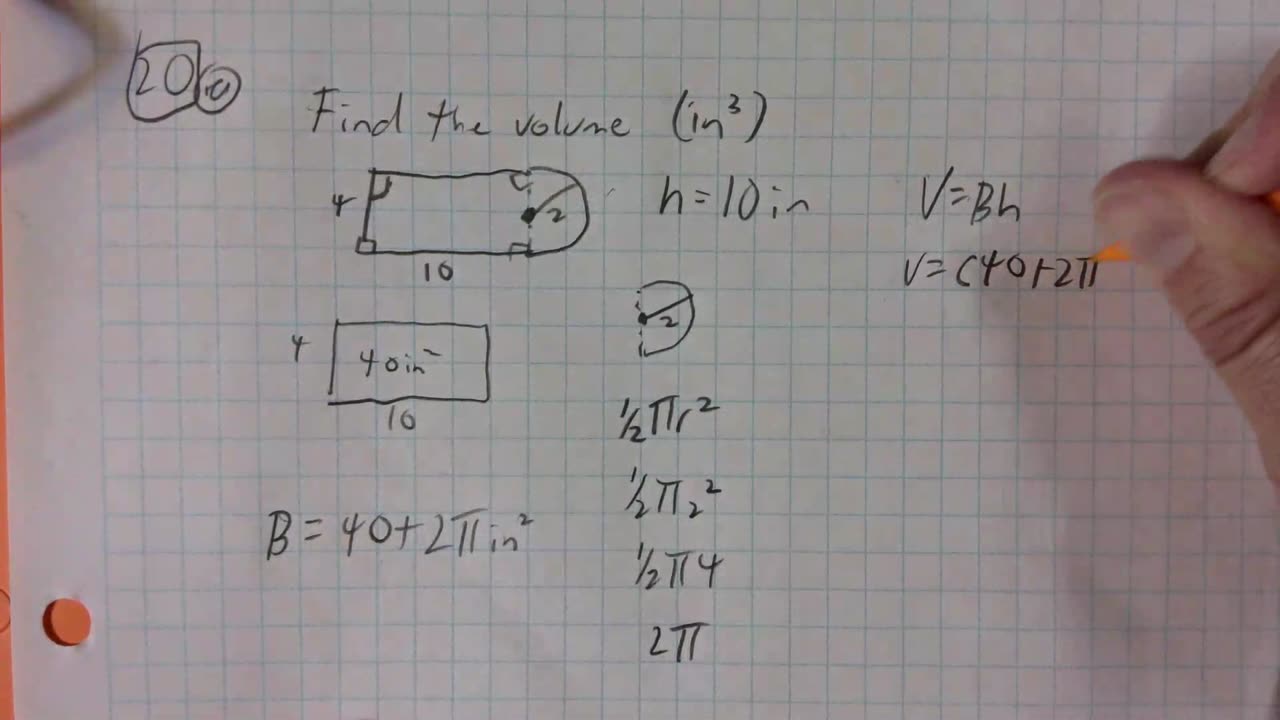 20 c
Find the volume (in³)
4
2
10
h = 10 in
V = Bh
V = (40 + 2π
2
4
40 in²
10
½πr²
½π2²
½π4
2π
B = 40 + 2π in²